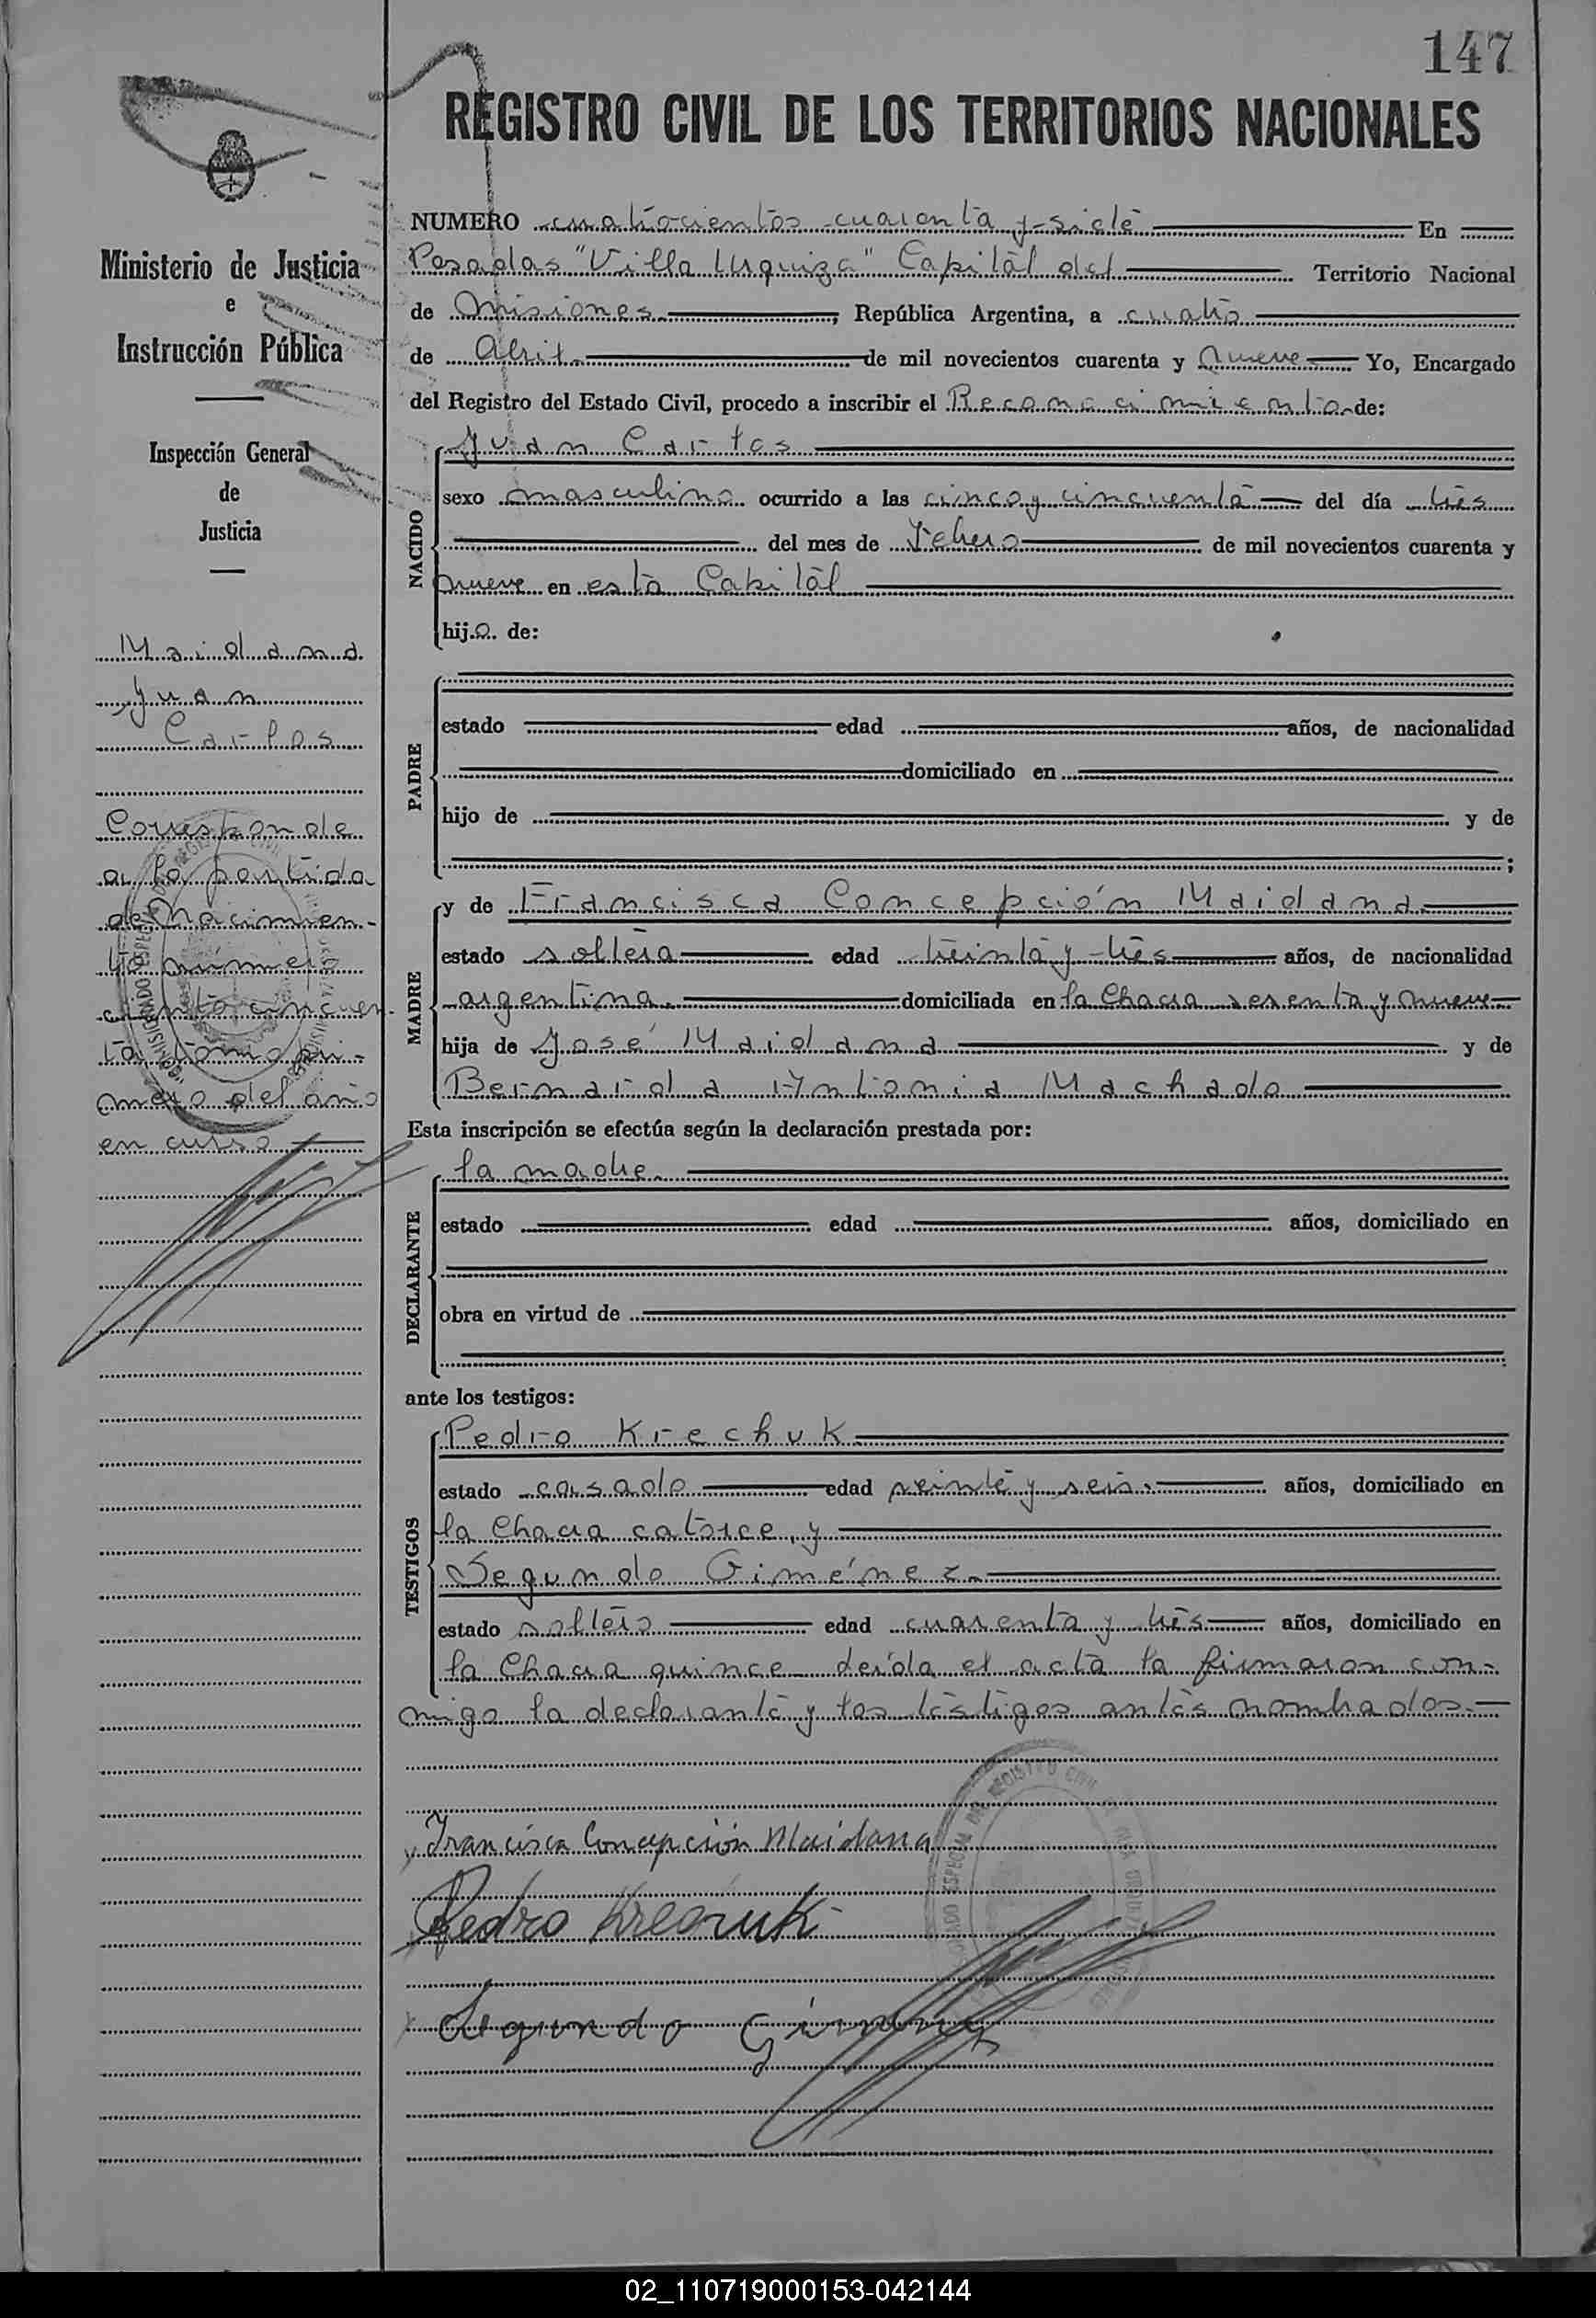 147
REGISTRO CIVIL DE LOS TERRITORIOS NACIONALES
Ministerio de Justicia
e
Instrucción Pública
Inspección General
de
Justicia
Maidana
Juan
Carlos
Corresponde
a la partida
de Nacimien-
to número
ciento cincuen-
ta, tomo pri-
mero del año
en curso
NUMERO cuatrocientos cuarenta y siete En
Posadas "Villa Urquiza" Capital del Territorio Nacional
de Misiones, República Argentina, a cuatro
de Abril de mil novecientos cuarenta y nueve Yo, Encargado
del Registro del Estado Civil, procedo a inscribir el Reconocimiento de:
NACIDO
Juan Carlos
sexo masculino ocurrido a las cinco y cincuenta del día tres
del mes de Febrero de mil novecientos cuarenta y
nueve en esta Capital
hijo de:
PADRE
estado edad años, de nacionalidad
domiciliado en
hijo de y de
;
MADRE
y de Francisca Concepción Maidana
estado soltera edad treinta y tres años, de nacionalidad
argentina. domiciliada en la Chacra sesenta y nueve
hija de José Maidana y de
Bernarda Antonia Machado
Esta inscripción se efectúa según la declaración prestada por:
DECLARANTE
la madre.
estado edad años, domiciliado en
obra en virtud de
ante los testigos:
TESTIGOS
Pedro Krechuk
estado casado edad veinte y seis. años, domiciliado en
la Chacra catorce, y
Segundo Giménez
estado soltero edad cuarenta y tres años, domiciliado en
la Chacra quince leída el acta la firmaron con-
migo la declarante y los testigos antes nombrados.
Francisca Concepción Maidana
Pedro Kreczuk
Segundo Gimenez
02_110719000153-042144